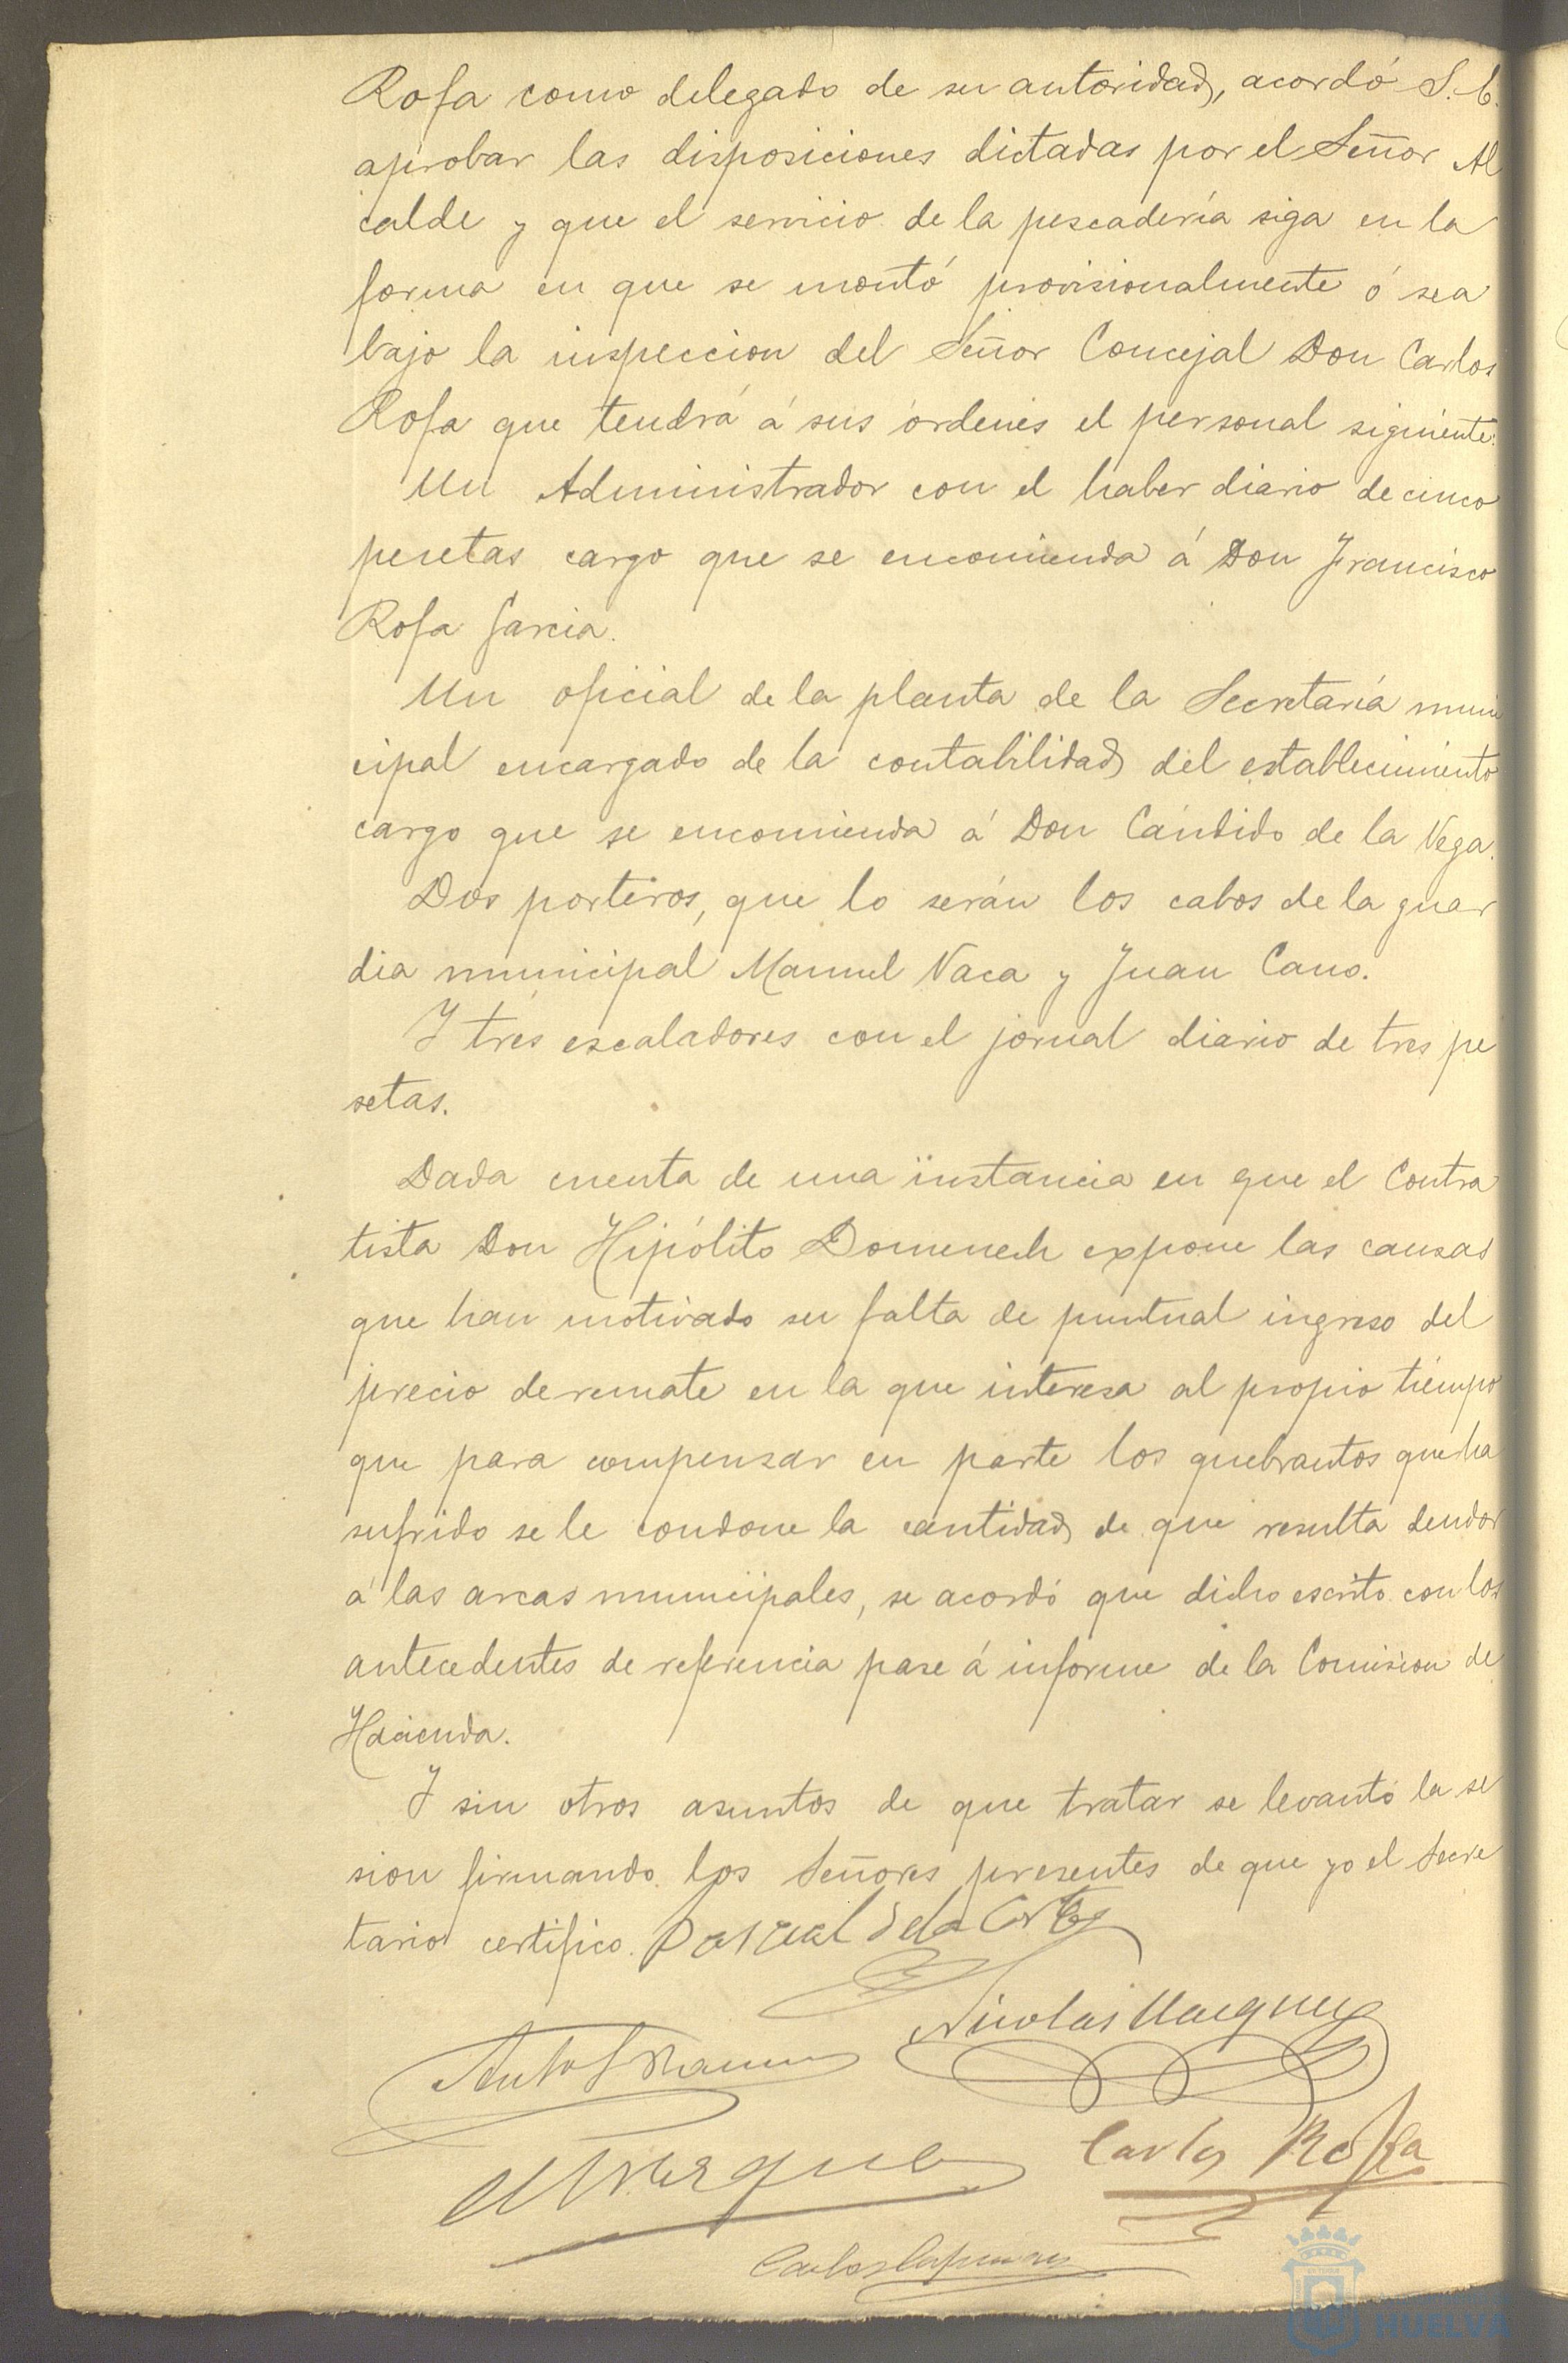 Rofa como delegado de su autoridad, acordó S. E.
aprobar las disposiciones dictadas por el Señor Al
calde y que el servicio de la pescadería siga en la
forma en que se montó provisionalmente ó sea
bajo la inspeccion del Señor Concejal Don Carlos
Rofa que tendrá á sus órdenes el personal siguiente:
Un Administrador con el haber diario de cinco
pesetas cargo que se encomienda á Don Francisco
Rofa Garcia.
Un oficial de la planta de la Secretaría muni
cipal encargado de la contabilidad del establecimiento
cargo que se encomienda á Don Cándido de la Vega.
Dos porteros, que lo serán los cabos de la guar
dia municipal Manuel Vaca y Juan Cano.
Y tres escaladores con el jornal diario de tres pe
setas.
Dada cuenta de una instancia en que el Contra
tista Don Hipólito Domenech expone las causas
que han motivado su falta de puntual ingreso del
precio de remate en la que interesa al propio tiempo
que para compensar en parte los quebrantos que ha
sufrido se le condone la cantidad de que resulta deudor
á las arcas municipales, se acordó que dicho escrito con los
antecedentes de referencia pase á informe de la Comision de
Hacienda.
Y sin otros asuntos de que tratar se levantó la se
sion firmando los Señores presentes de que yo el Secre
tario certifico.
Nicolas Vazquez
Carlos Rofa
Carlos
HUELVA